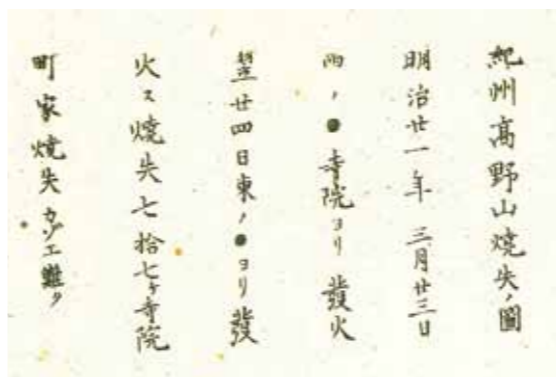 紀州高野山焼失ノ圖
明治廿一年三月廿三日
西ノ●寺院ヨリ發火
翌廿四日東ノ●ヨリ發
火ス焼失七拾七ヶ寺院
町家焼失カゾエ難ク